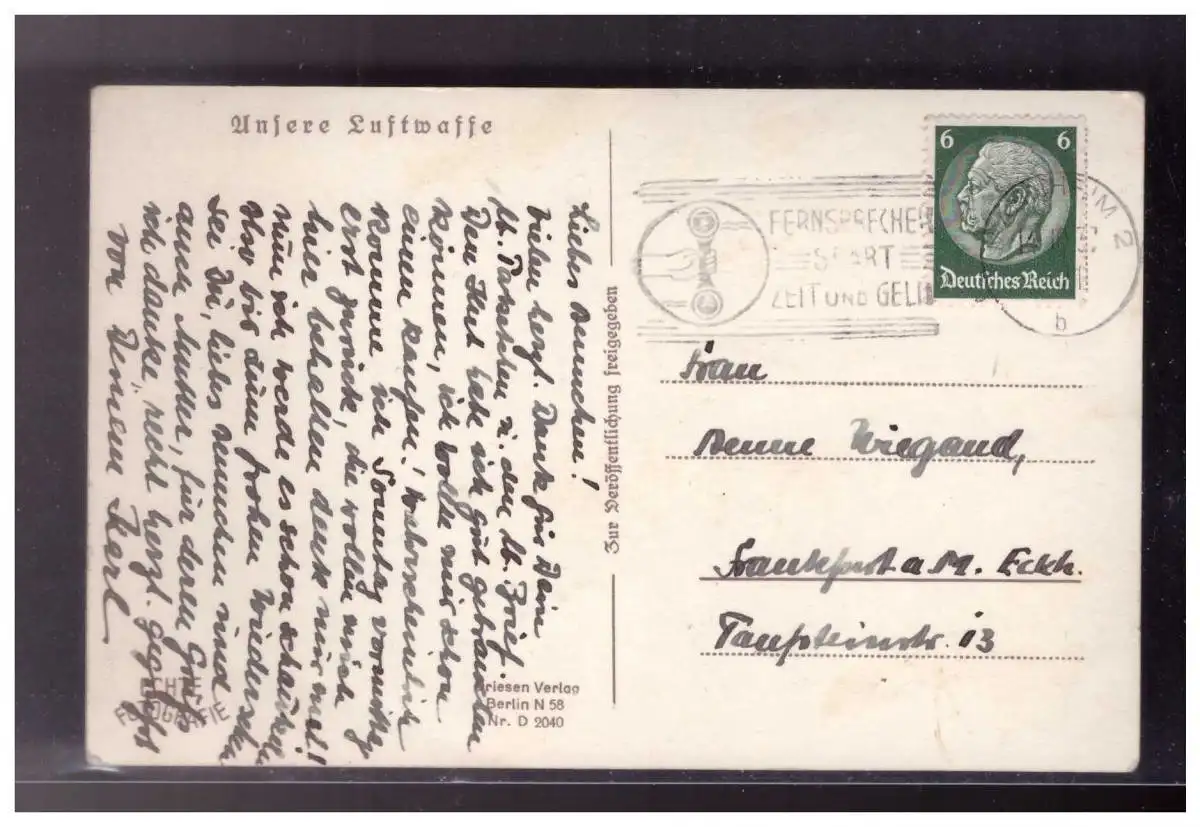 Unsere Luftwaffe
Liebes Annchen!
Vielen herzl. Dank für Dein
lb. Päckchen u. den lb. Brief.
Den Hut hab ich gut gebrauchen
können, ich wollte mir schon
einen kaufen! Wahrscheinlich
komme ich Sonntag vormittg
erst zurück, die wollen mich
hier behalten denk mir mal!
nun ich werde es schon schaukeln
Also bis zum frohen Wiedersehn
sei Du, liebs Annchen und
auch Mutter, für deren Gruß
ich danke, recht herzl. gegrüßt
von Deinem Karl
ECHTE
FOTOGRAFIE
Zur Veröffentlichung freigegeben
riesen Verlag
Berlin N 58
Nr. D 2040
FERNSPRECHE
SPART
ZEIT UND GELD
6 6
Deutsches Reich
2
b
Frau
Aenne Wiegand,
Frankfurt a M. Eckh.
Taunsteinstr. 13